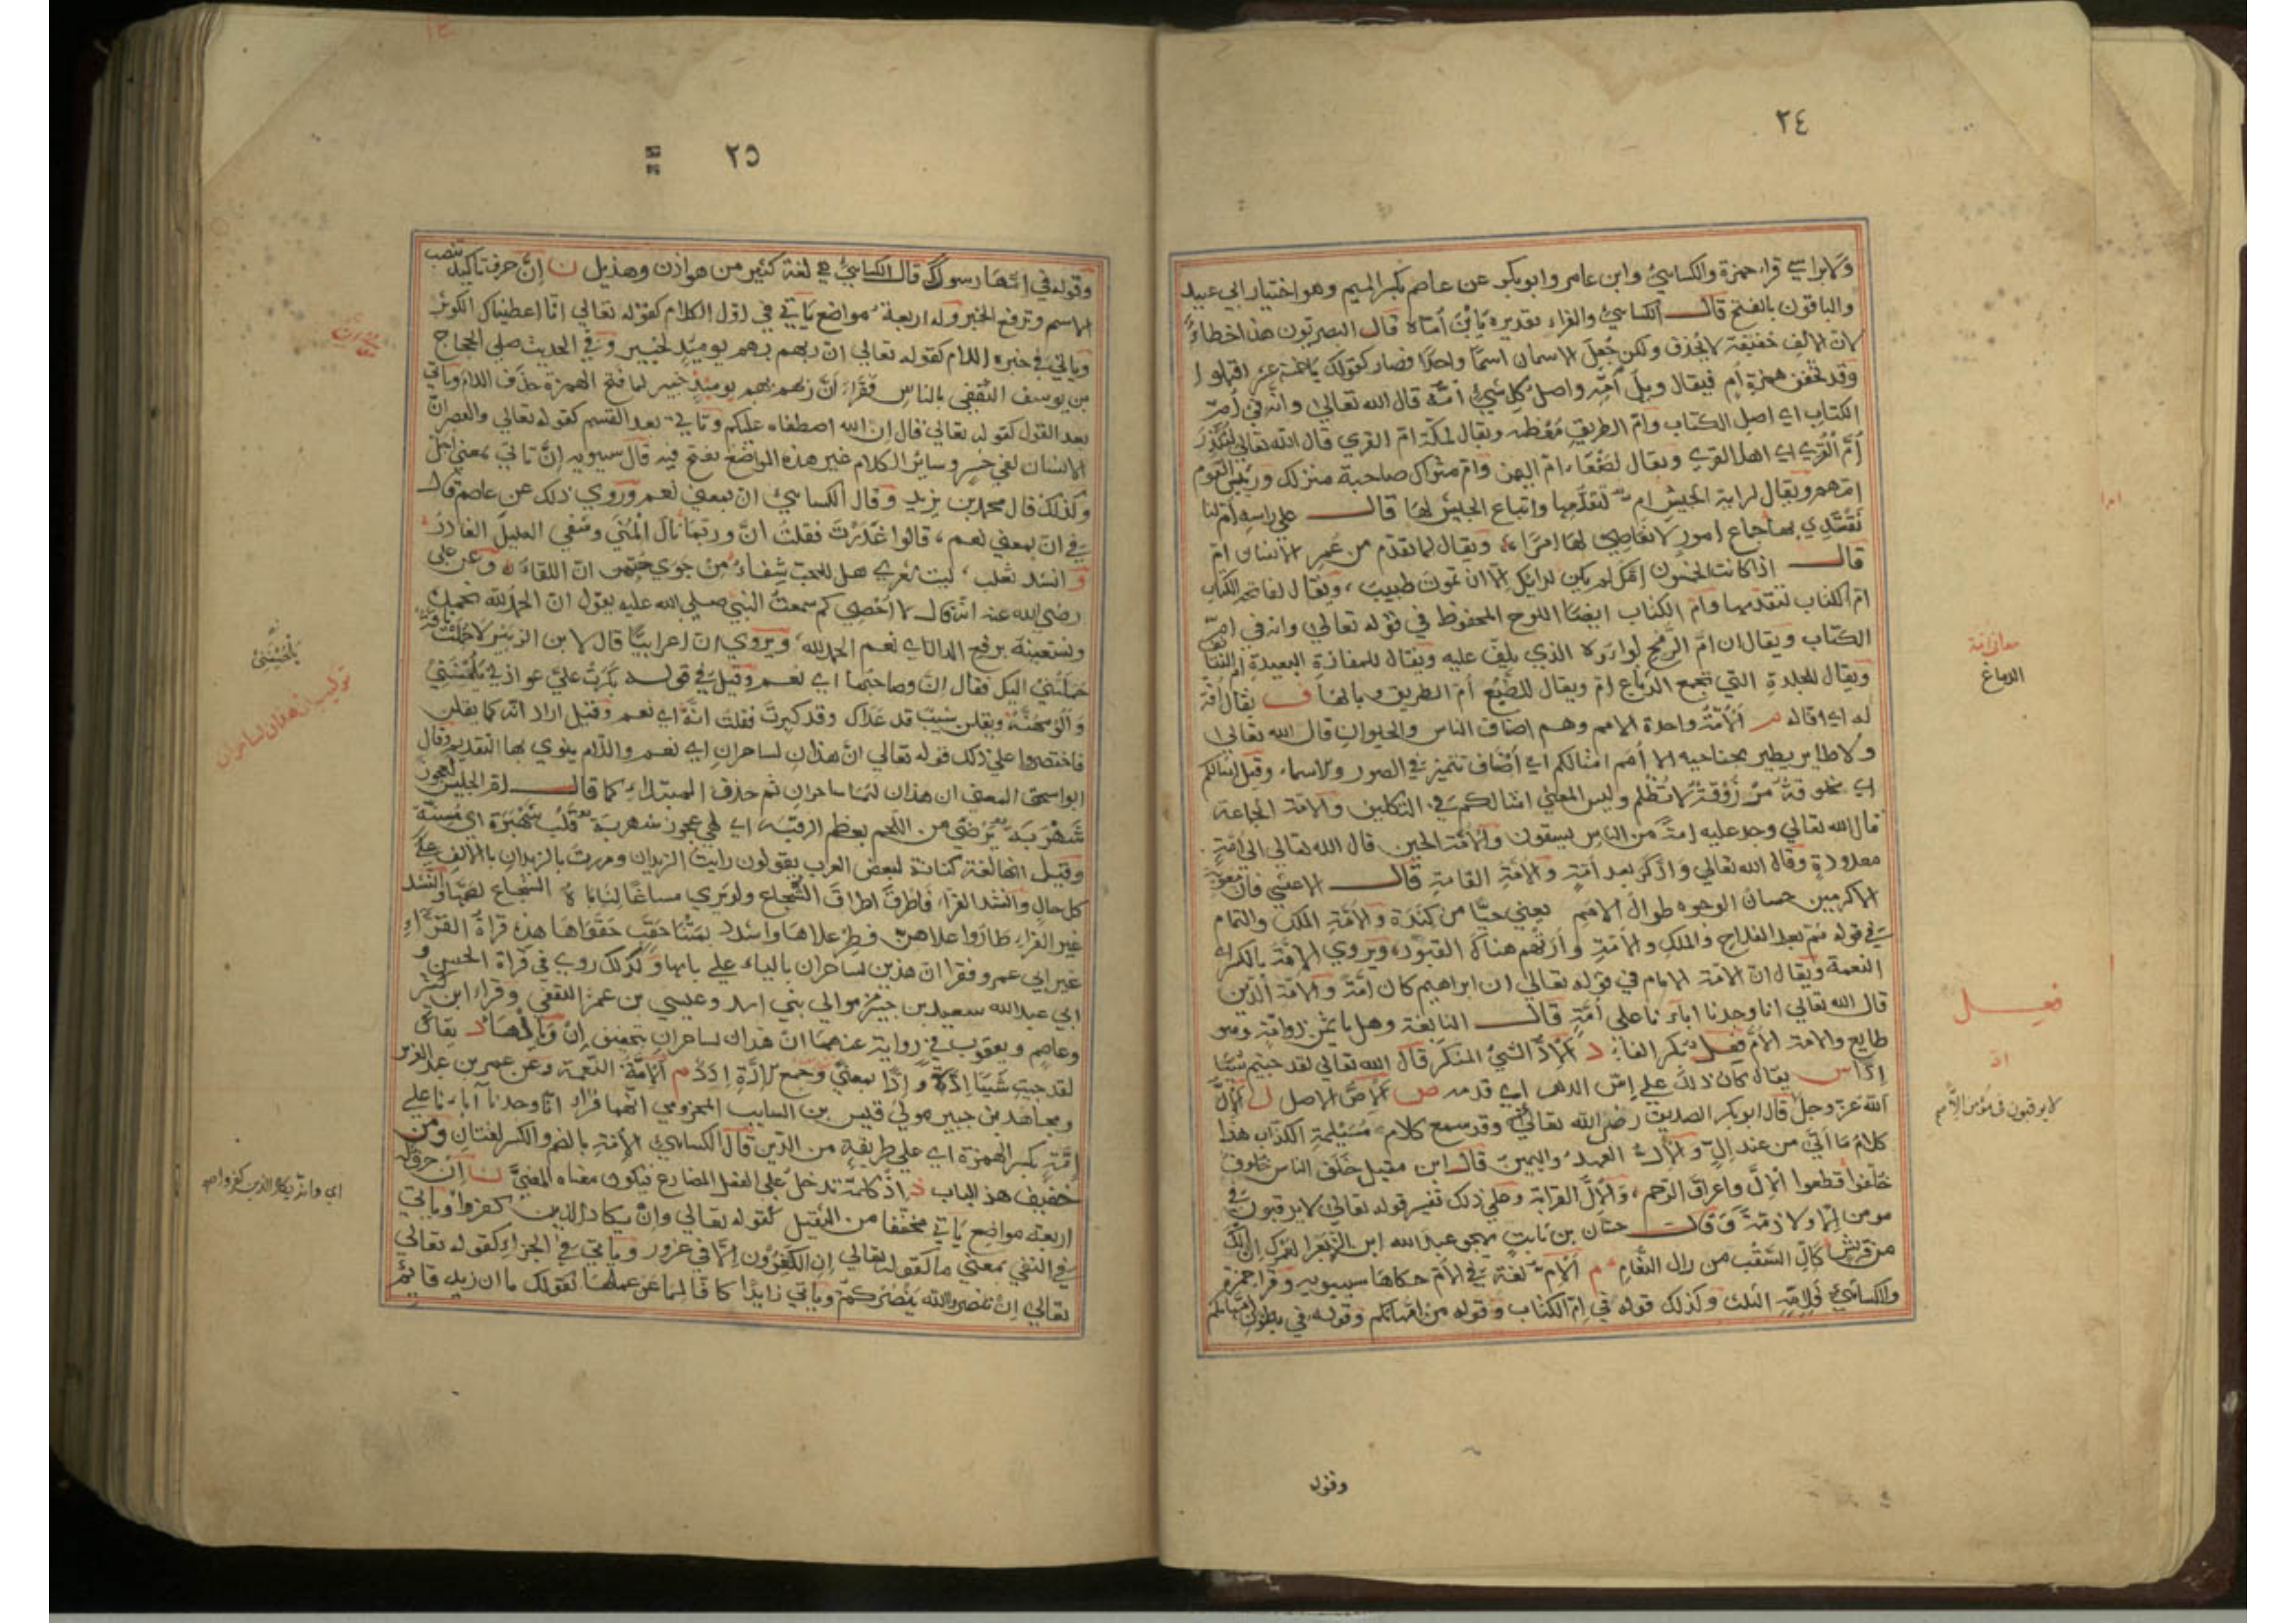 ٢٤
ولا براسي قراء حمزة والكسائيُّ وابن عامر وابو بكر عن عاصم بكسر الميم وهو اختيار ابي عبيد
والباقون بالفتح قال الكسائيُّ والفراء تقديره يَابْنَ أُمّاه قال البصريون هذا خطاءٌ
لان الالف خفيفة لا تحذف ولكن جُعِلَ الاسمان اسمًا واحدًا فصار كقولك يا خمسة عشر اقبلوا
وقد تحذف همزة اُم فيقال ويلُ اُمِّه واصل كل شيء اُمُّه قال الله تعالى وانّه في اُمِّ
الكتاب اي اصل الكتاب وامّ الطريق مُعْظمه ويقال لمكّة امّ القري قال الله تعالي لتُنْذِرَ
اُمَّ الْقُرَي اي اهل القري ويقال لصَنْعَاء امّ اليمن وامّ مثواك صاحبة منزلك ورئيس القوم
امّهم ويقال لراية الجيش ام لتقدّمها واتباع الجيش لها قال على راسه اُم لنا
نَقْتَدِي بها جماع امور لا نعاصي لها امرًا، ويقال لما تقدّم من عُمِر الانسان امّ
قال اذا كانت الخمسون امّك لم يكن لدائك الّا ان تموت طبيب، ويقال لفاتحة الكتاب
امّ الكتاب لتقدمها وامّ الكتاب ايضًا اللوح المحفوظ في قوله تعالي وانه في امّ
الكتاب ويقال ان امّ الرُّمح لواؤه الذي يلفّ عليه ويقال للمفازة البعيدة ام التنائف
ويقال للجلدة التي تجمع الدّماغ امّ ويقال للضَّبُع اُمّ الطريق وبالها ف يقال اُفّة
له اي اقاله م اَلأُمَّةُ واحدة الامم وهم اصناف الناس والحيوان قال الله تعالي
ولا طاير يطير بجناحيه الا اُمم امثالكم اي أصْنَاف تتميز في الصور والاسماء وقيل امثالكم
اي مخلوقةٌ مرْزُوْقةٌ لا تُظْلم وليس المعنى امثالكم في التكليف والامّة الجماعة
قال الله تعالي وجد عليه امّةً من الناس يسقون والأمّة الحين قال الله تعالي الى أمّةٍ
معدودةٍ وقال الله تعالي وادَّكَرَ بعد اُمّةٍ والاُمّة القامة قال الاعشي فان معوية
الاكرمين حسان الوجوه طوال الامم يعني حيًّا من كِنْدَة والاُمّة الملك والتمام
في قوله ثم بعد الفلاح والملك والامّةِ وأرَتْهُم هناك القبور، ويروي الاِمّة بالكسر اي
النعمة ويقال انّ الامّة الامام في قوله تعالي ان ابراهيم كان أمّةً والامّة الدّين
قال الله تعالي انا وجدنا اباءنا على اُمّةٍ قال النابغة وهل ياثمن ذو امّةٍ وهو
طايع والامّة الاُمّ فِعل بكسر الفاء د الإدُّ الشيْ المنكر قال الله تعالي لقد جيتم شيئا
إدًّا س يقال كان ذلك علي إسّ الدهر اي قدمه ص الإصّ الاصل ل الإلّ
اللّه عزّ وجلّ قال ابو بكر الصديق رضي الله تعالي عنه وقد سمع كلام مُسَيْلِمة الكذّاب هذا
كلامٌ مَا أتَى من عند إلّ والإلّ العهد واليمين قال ابن مقبل خَلَف الناس خلوف
خُلّفوا قطعوا الإلّ واعراق الرّحم، والإلّ القرابة وعلى ذلك تفسير قوله تعالي لا يرقبون في
مومن إلّا ولا ذمّةً وقال حسّان بن ثابت يهجو عبد الله ابن الزبعرا لعَمرك انّ إلّك
من قريش كالّ السَّقْب من رال النّعام م الإمّ لغة في الاُمّ حكاها سيبويه وقرا حمزة
والكسائي فَلِإمِّهِ الثلث وكذلك قوله في اِمّ الكتاب وقوله من اِمّهاتكم وقوله في بطون امهاتكم
وقوله
معاني أمّة
الدماغ
فعل
ادّ
لا يرقبون في مؤمن إلّا
٢٥
وقوله في اِمّهَا رسولا قال الكسائيُّ هي لغة كثير من هوازن وهذيل ن إنّ حرف تاكيد تنصب
الاسم وترفع الخبر وله اربعة مواضع يَأتي في اوّل الكلام كقوله تعالي انّا اعطيناك الكوثر
وياتي في خبره اللام كقوله تعالي انّ ربهم بهم يوميذٍ لخبير وفي الحديث صلى الحجاج
بن يوسف الثقفي بالناس فقراءَ أنّ ربهم بهم يوميذٍ خبير لما فتح الهمزة حذف اللام وياتي
بعد القول كقوله تعالي قال إنّ الله اصطفاه عليكم وتاتي بعد القسم كقوله تعالي والعصر انّ
الانسان لفي خسر وسائر الكلام غير هذه المواضع يفتح فيه قال سيبويه إنّ تاتي بمعنى أجل
وكذلك قال محمد بن يزيد وقال الكسائي انّ بمعنى نعم وروي ذلك عن عاصم قال
في انّ بمعنى نعم، قالوا غَدَرْتَ فقلتُ انّ وربّما نال المُنَي وشفي الغليل الغادرُ
و انشد ثعلب، ليت شعري هل للمحبّ شِفاءٌ من جَوي حبّهن انّ اللقاءُ، وعن على
رضي الله عنه انه قال لا اُحْصي كم سمعتُ النبيّ صلي الله عليه يقول انّ الحمدُ للّه نحمده
ونستعينه برفع الدال اي نعم الحمد لله، ويروي انّ اعرابيًّا قال لابن الزبير لا حُمِلَتْ ناقةٌ
حَمَلَتْنِيْ اليك فقال إنّ وصاحبُها اي نعم وقيل في قوله بَكَرَتْ عليَّ عواذلي يَلْحَيْنَنِيْ
وَاَلُومُهُنَّهْ ويقلن شيبٌ قد عَلَاك وقد كبرت فقلت انّهْ اي نعم وقيل اراد انه كما يقلن
فاختصر واعلي ذلك قوله تعالي انّ هذان لساحران اي نعم واللام ينوي بها التقديم وقال
ابو اسحق المعنى ان هذان لهما ساحران ثم حذف المبتداء كما قال ام الجليس لعجوزٌ
شَهْرَبَهْ تَرْضَي من اللحم بعظم الرقبه اي لهي عجوز شهربة قلب شَهْبَرَة اي مُسِنّة
وقيل انها لغة كنانة لبعض العرب يقولون رايت الزيدان ومررت بالزيدان بالالف علي
كل حال وانشد الفرّاء فاطرقَ اطراقَ الشّجاع ولو يري مساغًا لناباه الشجاع لصمّما وانشد
غير الفراء طاروا علاهن فطر علاها واشدد بمثنا حَقَبٍ حَقْوَاهَا هذه قراءةُ القُرّاءِ
غير ابي عمرو فقرا انّ هذين لساحران بالياء علي بابها وكذلك روي في قراة الحسن و
ابي عبد الله سعيد بن جبير موالي بني اسد وعيسي بن عمر الثقفي وقراء ابن كثير
وعاصم ويعقوب في رواية عنهما انْ هذان لساحران بتخفيف إنْ وبالهاء د يقال
لقد جيت شيئا إدّة وإدًّا بمعني وجمع إدّةٍ إدَدٌ م الإمّة النعمة وعن عمر بن عبد العزيز
ومجاهد بن جبير مولي قيس بن السايب المخزومي انّهما قراءا انّا وجدنا آباءنا علي
إمّةٍ بكسر الهمزة اي علي طريقة من الدّين قال الكسائي الاُمّة بالضم والكسر لغتان ومن
خفيف هذا الباب ذ اذ كلمة تدخل علي الفعل المضارع فيكون معناه المضيّ ن انْ حرف له
اربعة مواضع يَأتي مخفّفا من الثقيل كقوله تعالي وانْ يكاد الذين كفروا وياتي
في النفي بمعني ما كقوله تعالي إن الكفرون الّا في غرور وياتي في الجزاء كقوله تعالي
تعالي إنْ تنصروا الله يَنْصُرْكم وياتي زايدًا كافًا لما عن عملها كقولك ما ان زيد قائمٌ
يَلْحَيْنَنِيْ
تركيب انّ هذان لساحران
اي وانه يكاد الذين كفروا